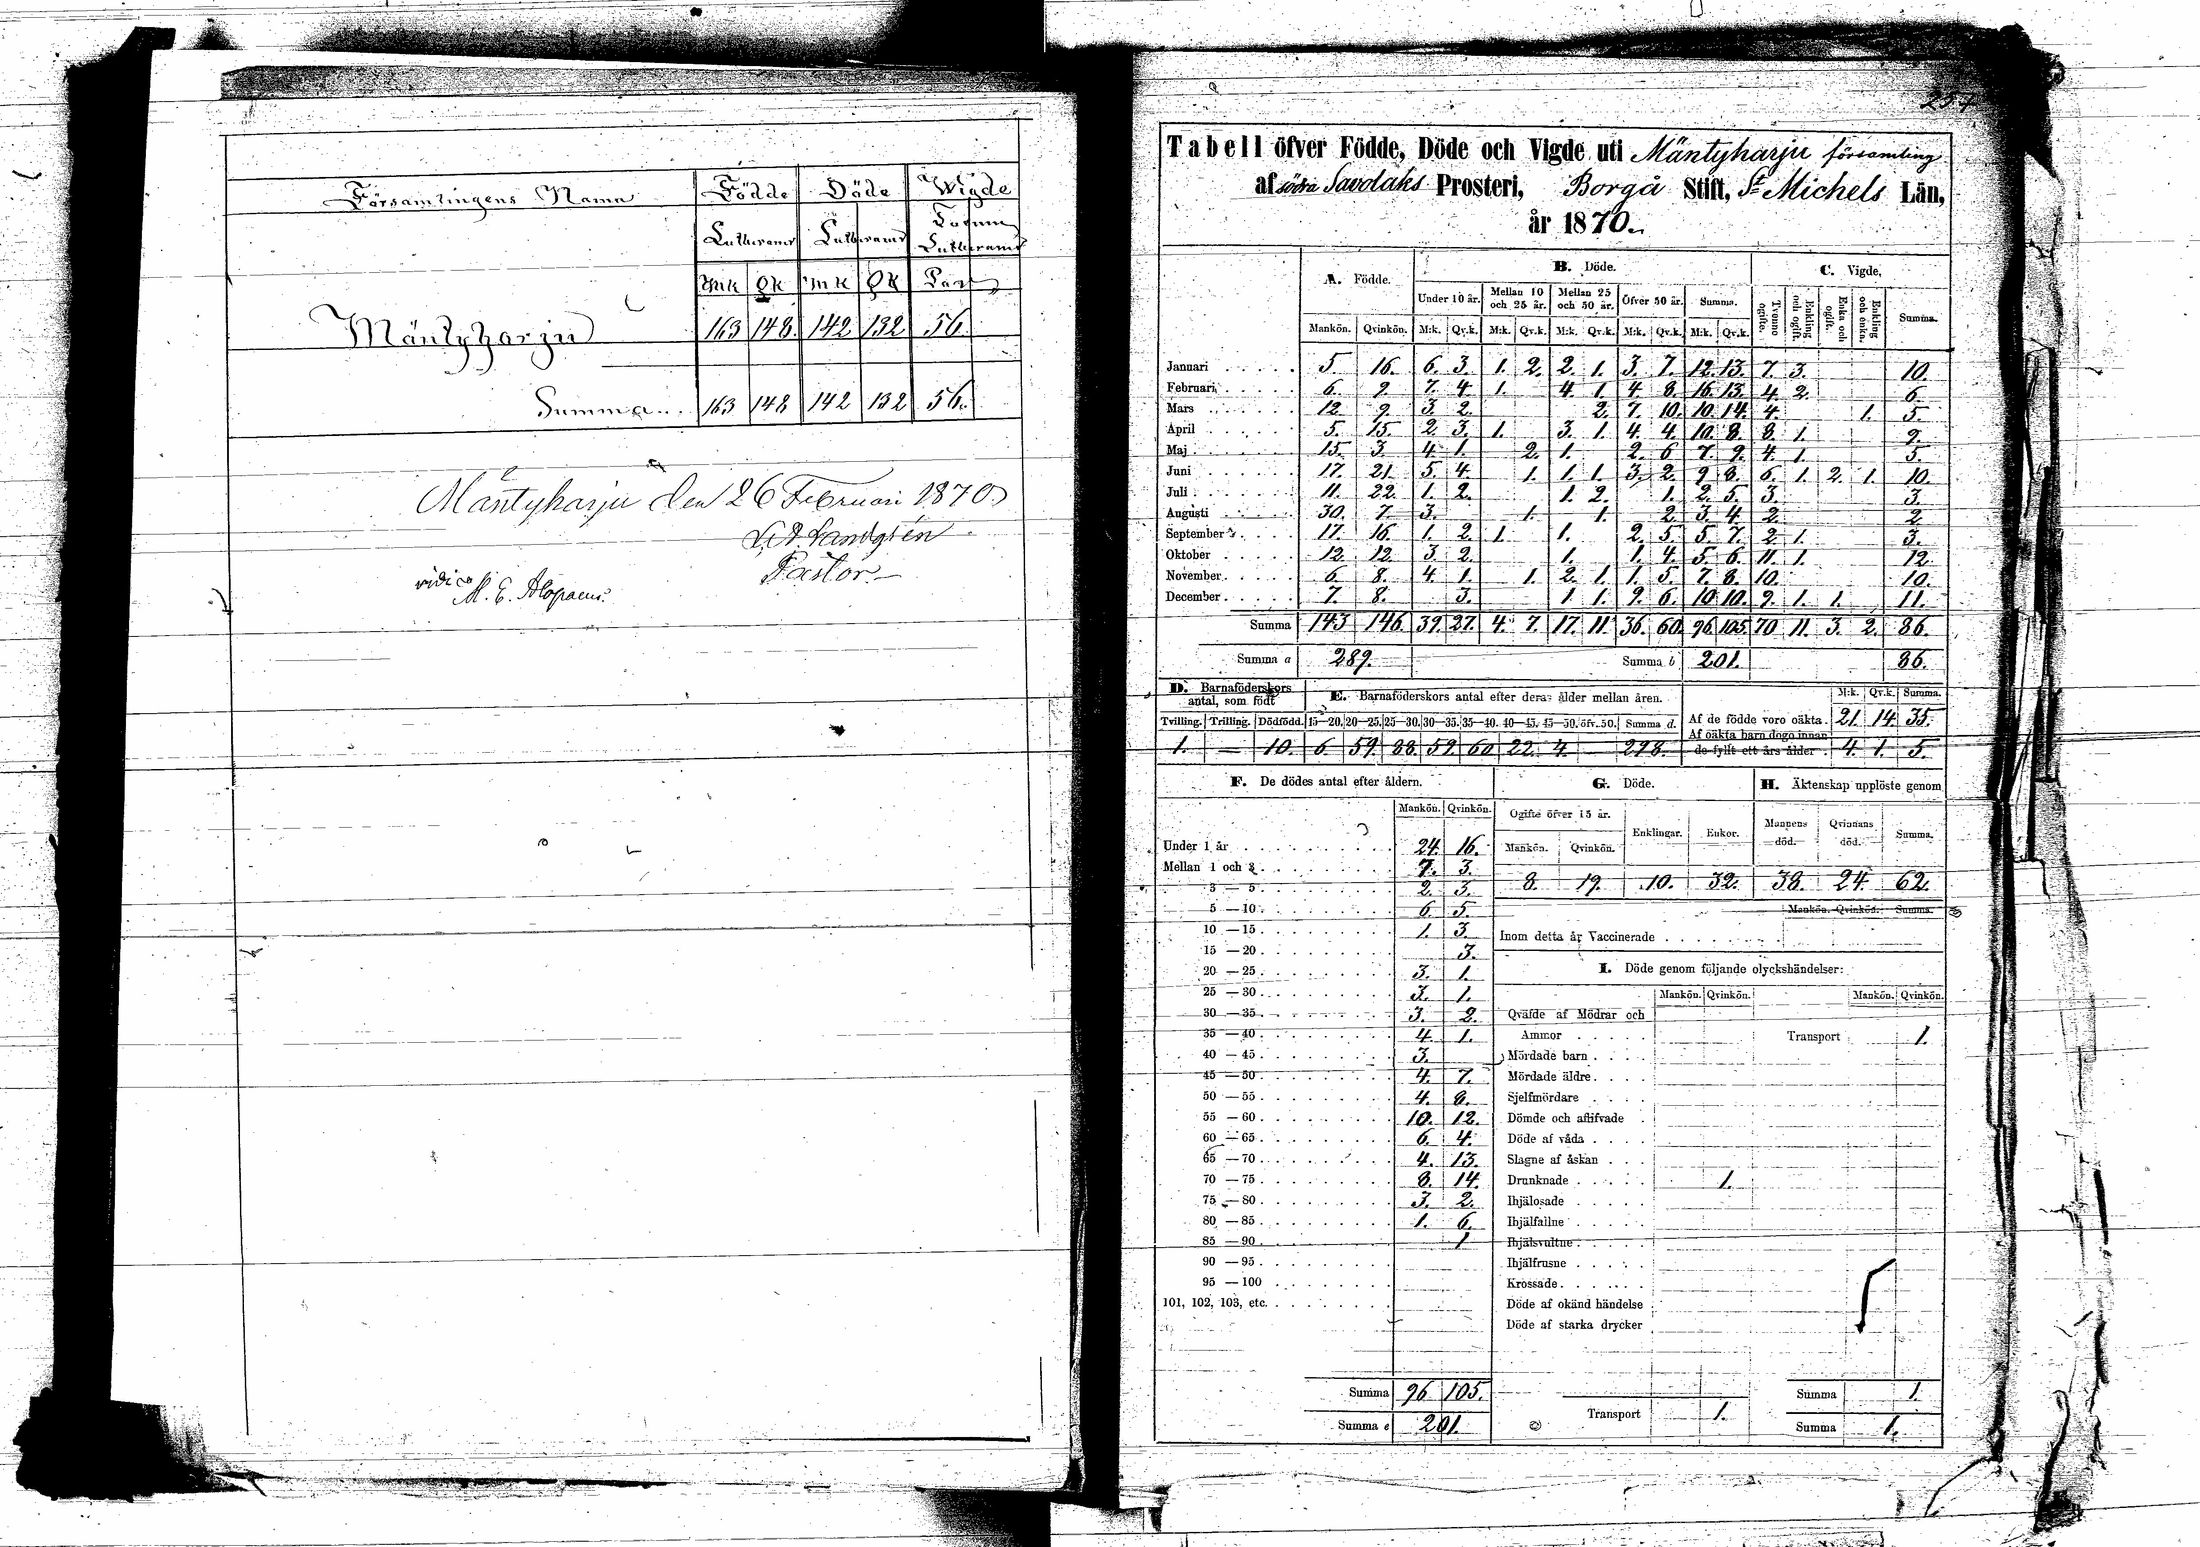 Församlingens Namn Födde Döde Wigde
Lutheraner Lutheraner Lutheraner
Mk Qk Mk Qk Par
Mäntyharju 163 148. 142 132 56.
Summa.. 163 148 142 132 56.
Mäntyharju den 26 Februari 1870
Pastor
vidi M. E. Alopaeus.
254
Tabell öfver Födde, Döde och Vigde uti Mäntyharju församling
af södra Savolaks Prosteri, Borgå Stift, St Michels Län,
år 1870.
A. Födde. B. Döde. C. Vigde.
Under 10 år. Mellan 10 och 25 år. Mellan 25 och 50 år. Öfver 50 år. Summa. Tvenne ogifte. Enkling och ogift. Enka och ogift. Enkling och enka. Summa.
Mankön. Qvinkön. M:k. Qv.k. M:k. Qv.k. M:k. Qv.k. M:k. Qv.k. M:k. Qv.k.
Januari 5. 16. 6. 3. 1. 2. 2. 1. 3. 7. 12. 13. 7. 3. 10.
Februari 6. 9. 7. 4. 1. 4. 1. 4. 8. 16. 13. 4. 2. 6.
Mars 12. 9. 3. 2. 2. 7. 10. 10. 14. 4. 1. 5.
April 5. 15. 2. 3. 1. 3. 1. 4. 4. 10. 8. 8. 1. 9.
Maj 15. 3. 4. 1. 2. 1. 2. 6. 7. 9. 4. 1. 5.
Juni 17. 21. 5. 4. 1. 1. 1. 3. 2. 9. 8. 6. 1. 2. 1. 10.
Juli 11. 22. 1. 2. 1. 2. 1. 2. 5. 3. 3.
Augusti 30. 7. 3. 1. 1. 2. 3. 4. 2. 2.
September 17. 16. 1. 2. 1. 1. 2. 5. 5. 7. 2. 1. 3.
Oktober 12. 12. 3. 2. 1. 1. 4. 5. 6. 11. 1. 12.
November 6. 8. 4. 1. 1. 2. 1. 1. 5. 7. 8. 10. 10.
December 7. 8. 3. 1. 1. 9. 6. 10. 10. 9. 1. 1. 11.
Summa 143 146. 39. 27. 4. 7. 17. 11. 36. 60. 96. 105. 70 11. 3. 2. 86.
Summa a 289. Summa b 201. 86.
D. Barnaföderskors antal, som födt
Tvilling. Trilling. Dödfödd.
1. — 10.
E. Barnaföderskors antal efter deras ålder mellan åren.
15—20. 20—25. 25—30. 30—35. 35—40. 40—45. 45—50. öfv. 50. Summa d.
6. 59. 88. 59. 60. 22. 4. 298.
M:k. Qv.k. Summa.
Af de födde voro oäkta. 21. 14. 35.
Af oäkta barn dogo innan
de fyllt ett års ålder 4. 1. 5.
F. De dödes antal efter åldern.
Mankön. Qvinkön.
Under 1 år 24. 16.
Mellan 1 och 3 7. 3.
3 — 5 2. 3.
5 — 10 6. 5.
10 — 15 1. 3.
15 — 20 3.
20 — 25 3. 1.
25 — 30 3. 1.
30 — 35 3. 2.
35 — 40 4. 1.
40 — 45 3.
45 — 50 4. 7.
50 — 55 4. 8.
55 — 60 10. 12.
60 — 65 6. 4.
65 — 70 4. 13.
70 — 75 8. 14.
75 — 80 3. 2.
80 — 85 1. 6.
85 — 90 1
90 — 95
95 — 100
101, 102, 103, etc.
Summa 96 105.
Summa e 201.
G. Döde.
Ogifte öfver 15 år. Enklingar. Enkor.
Mankön. Qvinkön.
8. 19. 10. 32.
H. Äktenskap upplöste genom
Mannens död. Qvinnans död. Summa.
38. 24. 62.
Mankön. Qvinkön. Summa.
Inom detta år Vaccinerade
I. Döde genom följande olyckshändelser:
Mankön. Qvinkön. Mankön. Qvinkön.
Qväfde af Mödrar och
Ammor
Transport 1.
Mördade barn
Mördade äldre
Sjelfmördare
Dömde och aflifvade
Döde af våda
Slagne af åskan
Drunknade 1.
Ihjälosade
Ihjälfallne
Ihjälsvultne
Ihjälfrusne
Krossade
Döde af okänd händelse
Döde af starka drycker
Summa 1.
Transport 1.
Summa 1.